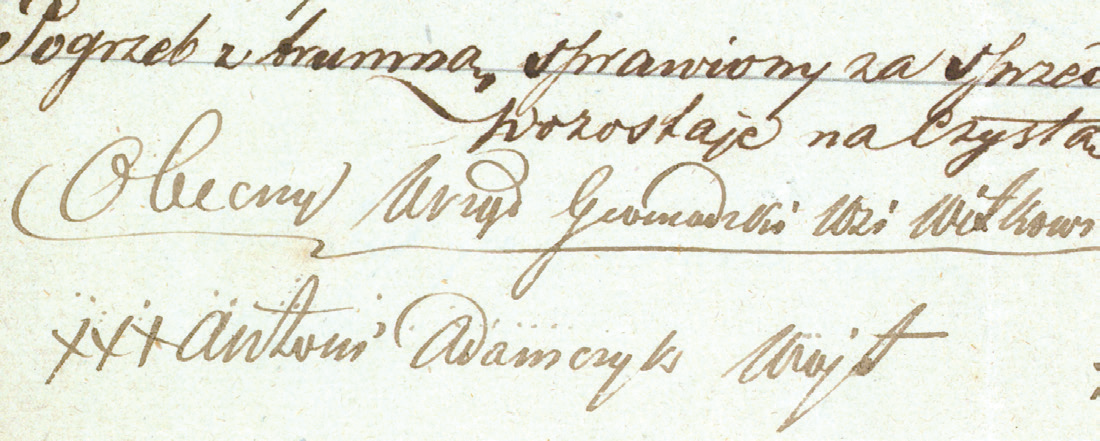 Pogrzeb z trumną sprawiony za sprzę
pozostaje na Czysta
Obecny Urząd Gromadzki Wsi Witkowi
+++ Antoni Adamczyk Wójt